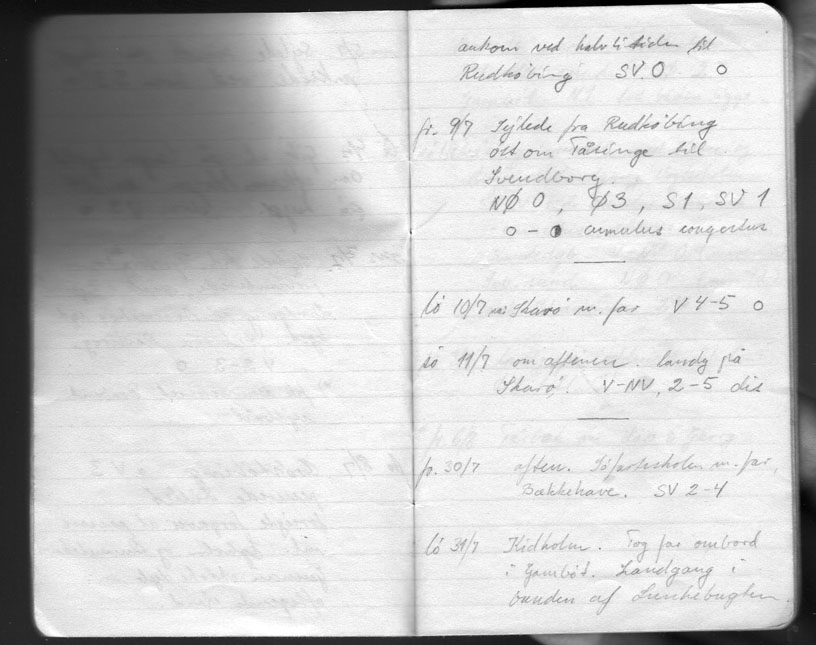 ankom ved halvtitiden til
Rudkøbing SV 0 O
fr. 9/7 Sejlede fra Rudkøbing
øst om Tåsinge til
Svendborg.
NØ 0, Ø3, S1, SV 1
O - ◑ cumulus congestus
lö 10/7 Skarø m. far V 4-5 O
sö 11/7 om aftenen. landg på
Skarø. V-NV, 2-5 dis
fr. 30/7 aften. Söfartsskolen m. far,
Bækkehave. SV 2-4
lö 31/7 Kidholm. Tog far ombord
i Gambøt. Landgang i
bunden af Lunkebugten.